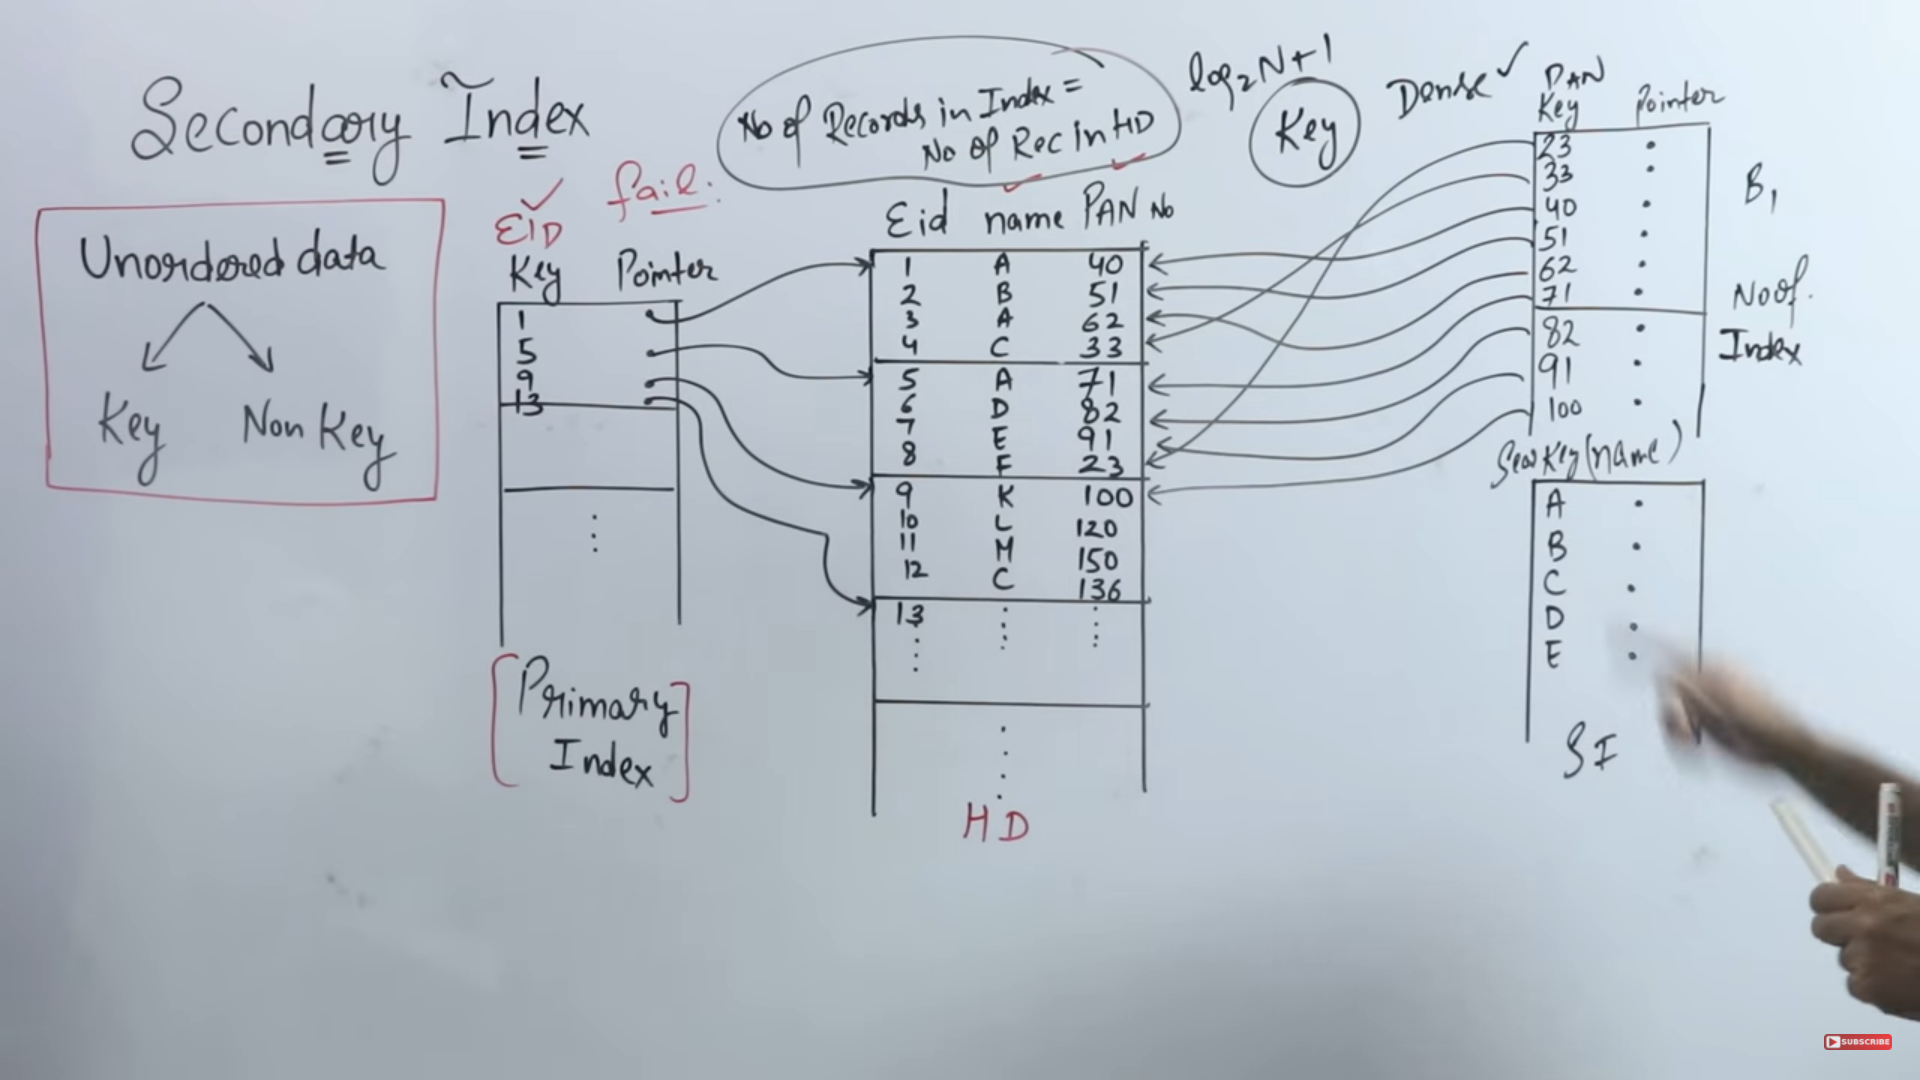 Secondary Index
Unordered data
Key Non Key
EID
fail.
Key Pointer
1
5
9
13
Primary
Index
No of Records in Index =
No of Rec in HD
log₂N+1
Key
Dense ✓
Eid name PAN No
1 A 40
2 B 51
3 A 62
4 C 33
5 A 71
6 D 82
7 E 91
8 F 23
9 K 100
10 L 120
11 M 150
12 C 136
13
HD
PAN
Key Pointer
23
33
40
51
62
71
82
91
100
B₁
No of.
Index
Key (name)
A
B
C
D
E
SI
SUBSCRIBE